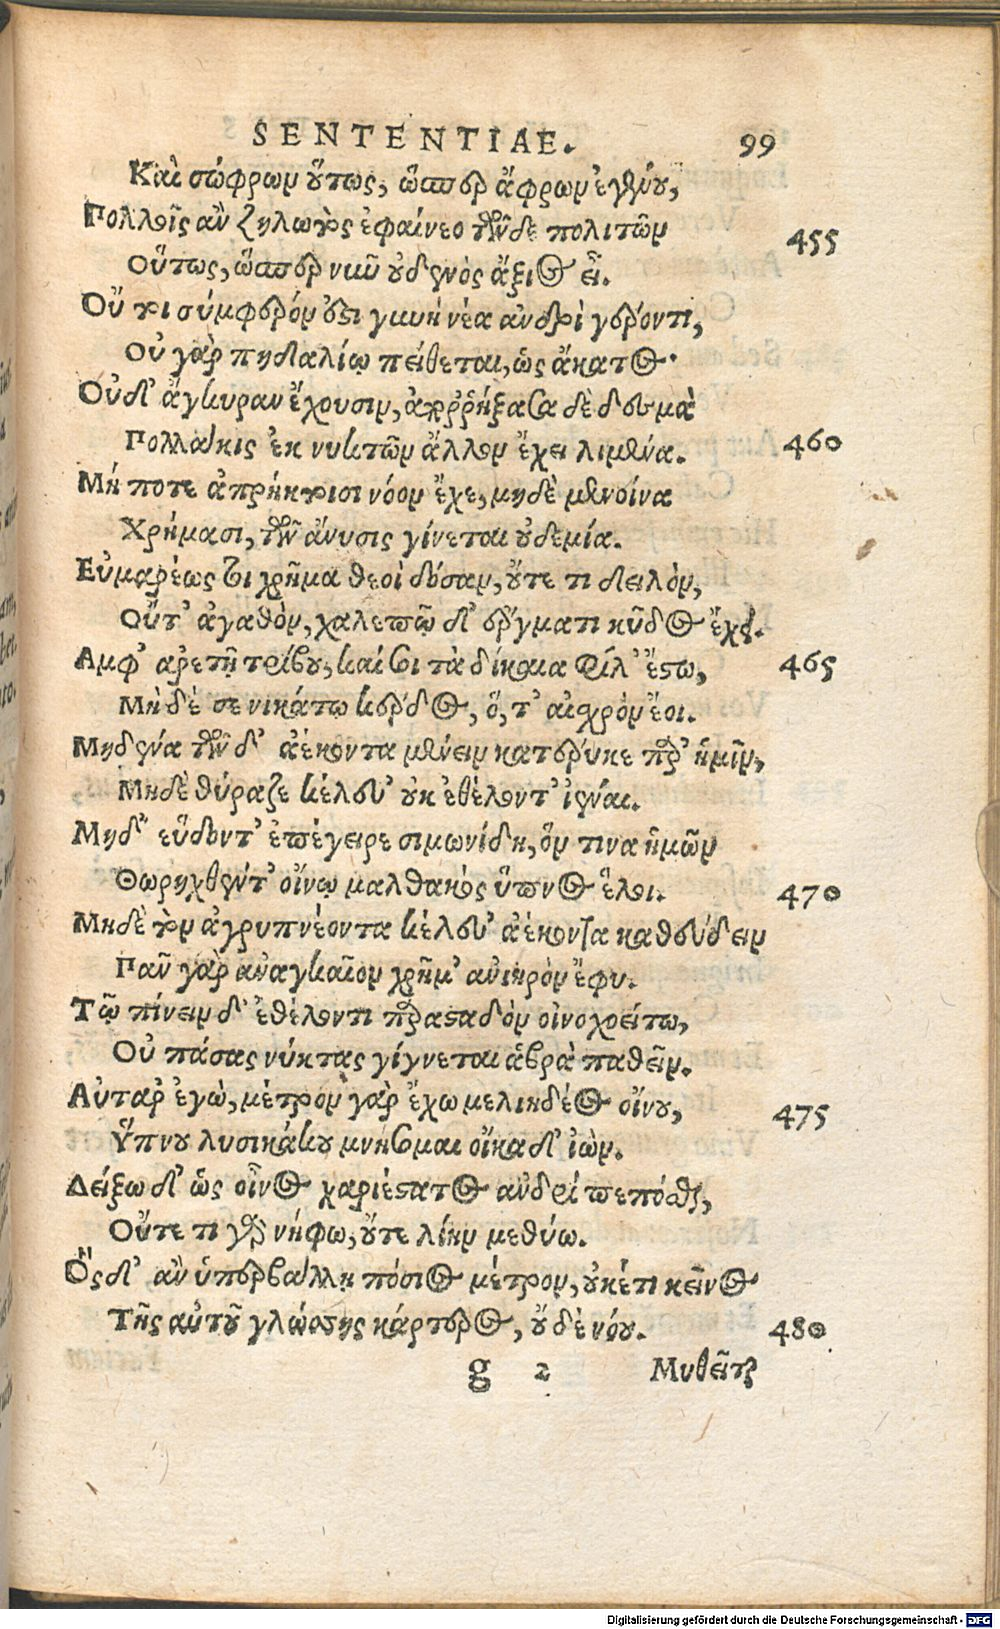 SENTENTIAE. 99
Καὶ σώφρων οὕτως, ὥσπερ ἄφρων ἐγένου,
Πολλοῖς ἂν ζηλωτὸς ἐφαίνεο τῶνδε πολιτῶν 455
Οὕτως, ὥσπερ νῦν οὐδενὸς ἄξιος εἶ.
Οὔ τοι σύμφερόν ἐστι γυνὴ νέα ἀνδρὶ γέροντι,
Οὐ γὰρ πηδαλίῳ πείθεται, ὡς ἄκατος·
Οὐδ' ἄγκυραν ἔχουσιν, ἀπορρήξασα δὲ δεσμὰ
Πολλάκις ἐκ νυκτῶν ἄλλον ἔχει λιμένα. 460
Μή ποτε ἀπρήκτοισι νόον ἔχε, μηδὲ μενοίνα
Χρήμασι, τῶν ἄνυσις γίνεται οὐδεμία.
Εὐμαρέως τοι χρῆμα θεοὶ δόσαν, οὔτε τι δειλὸν,
Οὔτ' ἀγαθὸν, χαλεπῷ δ' ἔργματι κῦδος ἔχει.
Αμφ' ἀρετῇ τρίβου, καί τοι τὰ δίκαια φίλ' ἔστω, 465
Μὴ δέ σε νικάτω κέρδος, ὅ, τ' αἰσχρὸν ἔοι.
Μηδένα τῶν δ' ἀέκοντα μένειν κατέρυκε παρ' ἡμῖν,
Μηδὲ θύραζε κέλευ' οὐκ ἐθέλοντ' ἰέναι.
Μηδ' εὕδοντ' ἐπέγειρε σιμωνίδη, ὅν τινα ἡμῶν
Θωρηχθέντ' οἴνῳ μαλθακὸς ὕπνος ἕλοι. 470
Μηδὲ τὸν ἀγρυπνέοντα κέλευ' ἀέκοντα καθεύδειν
Πᾶν γὰρ ἀναγκαῖον χρῆμ' ἀνιηρὸν ἔφυ.
Τῷ πίνειν δ' ἐθέλοντι παρασταδὸν οἰνοχοείτω,
Οὐ πάσας νύκτας γίγνεται ἁβρὰ παθεῖν.
Αὐτὰρ ἐγὼ, μέτρον γὰρ ἔχω μελιηδέος οἴνου, 475
Ὕπνου λυσικάκου μνήσομαι οἴκαδ' ἰὼν.
Δείξω δ' ὡς οἶνος χαριέστατος ἀνδρὶ πεπόσθαι,
Οὔτε τι γὰρ νήφω, οὔτε λίην μεθύω.
Ὃς δ' ἂν ὑπερβάλλῃ πόσιος μέτρον, οὐκέτι κεῖνος
Τῆς αὐτοῦ γλώσσης κάρτερος, οὐδὲ νόου. 480
g 2 Μυθεῖται
Digitalisierung gefördert durch die Deutsche Forschungsgemeinschaft - DFG